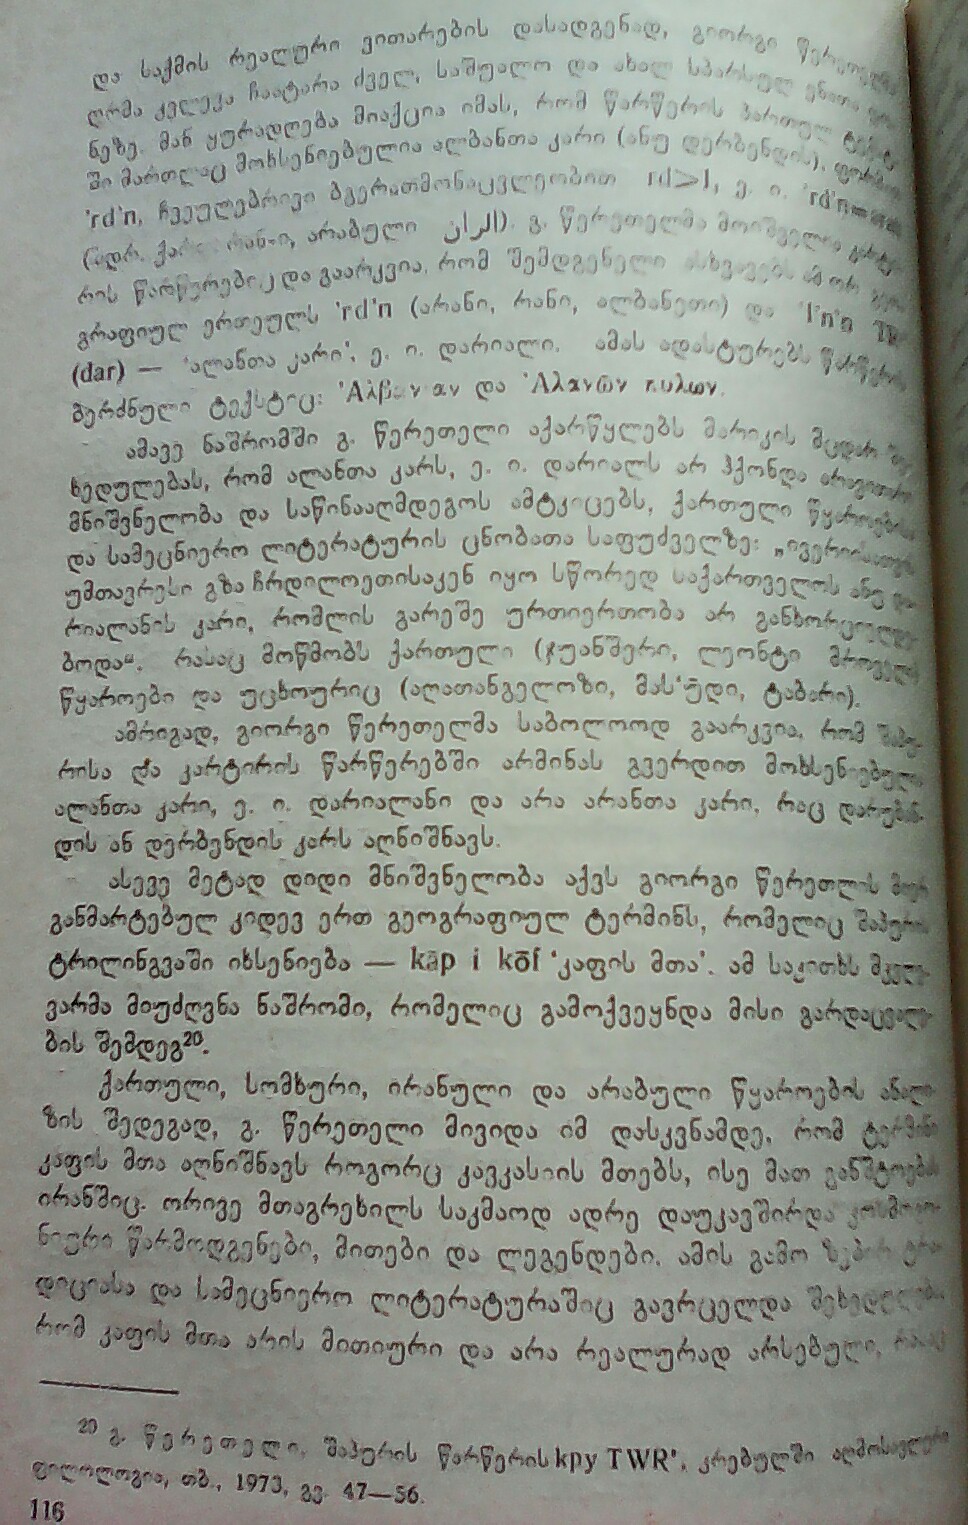 და საქმის რეალური ვითარების დასადგენად, გიორგი წერეთელმა
ღრმა კვლევა ჩაატარა ძველ, საშუალო და ახალ სპარსულ ენათა
ნეზე. მან ყურადღება მიაქცია იმას, რომ წარწერის პართულ ტექსტ-
ში მართლაც მოხსენიებულია ალბანთა კარი (ანუ დერბენდის),
'rd'n, ჩვეულებრივი ბგერათმონაცვლეობით rd>l, ე. ი. 'rd'n
(შდრ. ქართ. რანი, არაბული الران). გ. წერეთელმა მოიშველია
რის წარწერებიც და გაარკვია, რომ შემდგენელი ასხვავებს ამ ორ გეო-
გრაფიულ ერთეულს 'rd'n (არანი, რანი, ალბანეთი) და 'l'n'n
(dar) — 'ალანთა კარი', ე. ი. დარიალი. ამას ადასტურებს წარწერის
ბერძნული ტექსტიც: და 'Αλανῶν πυλων.
ამავე ნაშრომში გ. წერეთელი აქარწყლებს მარიკის მცდარ შე-
ხედულებას, რომ ალანთა კარს, ე. ი. დარიალს არ ჰქონდა არავითარი
მნიშვნელობა და საწინააღმდეგოს ამტკიცებს, ქართული წყაროების
და სამეცნიერო ლიტერატურის ცნობათა საფუძველზე: „ივერიისათვის
უმთავრესი გზა ჩრდილოეთისაკენ იყო სწორედ საქართველოს ანუ და-
რიალანის კარი, რომლის გარეშე ურთიერთობა არ განხორციელდე-
ბოდა“. რასაც მოწმობს ქართული (ჯუანშერი, ლეონტი მროველი)
წყაროები და უცხოურიც (აღათანგელოზი, მას‘ūდი, ტაბარი).
ამრიგად, გიორგი წერეთელმა საბოლოოდ გაარკვია, რომ შაპუ-
რისა და კარტირის წარწერებში არმინას გვერდით მოხსენიებულია
ალანთა კარი, ე. ი. დარიალანი და არა არანთა კარი, რაც დარუბან-
დის ან დერბენდის კარს აღნიშნავს.
ასევე მეტად დიდი მნიშვნელობა აქვს გიორგი წერეთლის მიერ
განმარტებულ კიდევ ერთ გეოგრაფიულ ტერმინს, რომელიც შაპურის
ტრილინგვაში იხსენიება — kāp i kōf 'კაფის მთა'. ამ საკითხს მკვლე-
ვარმა მიუძღვნა ნაშრომი, რომელიც გამოქვეყნდა მისი გარდაცვალე-
ბის შემდეგ²⁰.
ქართული, სომხური, ირანული და არაბული წყაროების ანალი-
ზის შედეგად, გ. წერეთელი მივიდა იმ დასკვნამდე, რომ ტერმინი
კაფის მთა აღნიშნავს როგორც კავკასიის მთებს, ისე მათ განშტოებას
ირანშიც. ორივე მთაგრეხილს საკმაოდ ადრე დაუკავშირდა კოსმოგო-
ნიური წარმოდგენები, მითები და ლეგენდები. ამის გამო ზეპირ ტრა-
დიციასა და სამეცნიერო ლიტერატურაშიც გავრცელდა შეხედულება,
რომ კაფის მთა არის მითიური და არა რეალურად არსებული, რასაც
²⁰ გ. წერეთელი, შაპურის წარწერის kpy TWR', კრებულში აღმოსავლური
ფილოლოგია, თბ., 1973, გვ. 47—56.
116